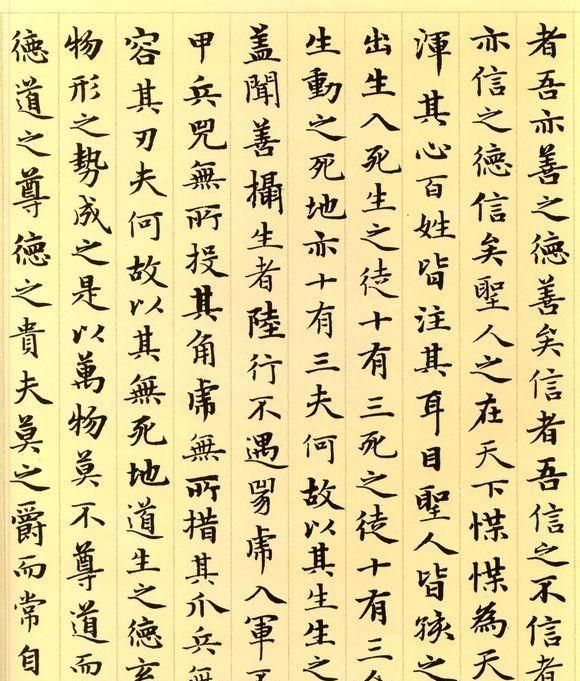 者吾亦善之德善矣信者吾信之不信者
亦信之德信矣聖人之在天下惵惵為天
渾其心百姓皆注其耳目聖人皆孩之
出生入死生之徒十有三死之徒十有三
生動之死地亦十有三夫何故以其生生之
盖聞善攝生者陸行不遇兕虎入軍不
甲兵兕無所投其角虎無所措其爪兵無
容其刃夫何故以其無死地道生之德
物形之勢成之是以萬物莫不尊道而
德道之尊德之貴夫莫之爵而常自